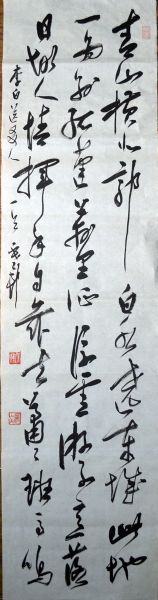 青山橫北郭白水遶東城此地
一為別孤蓬萬里征浮雲游子意落
日故人情揮手自茲去蕭々班馬鳴
李白送友人